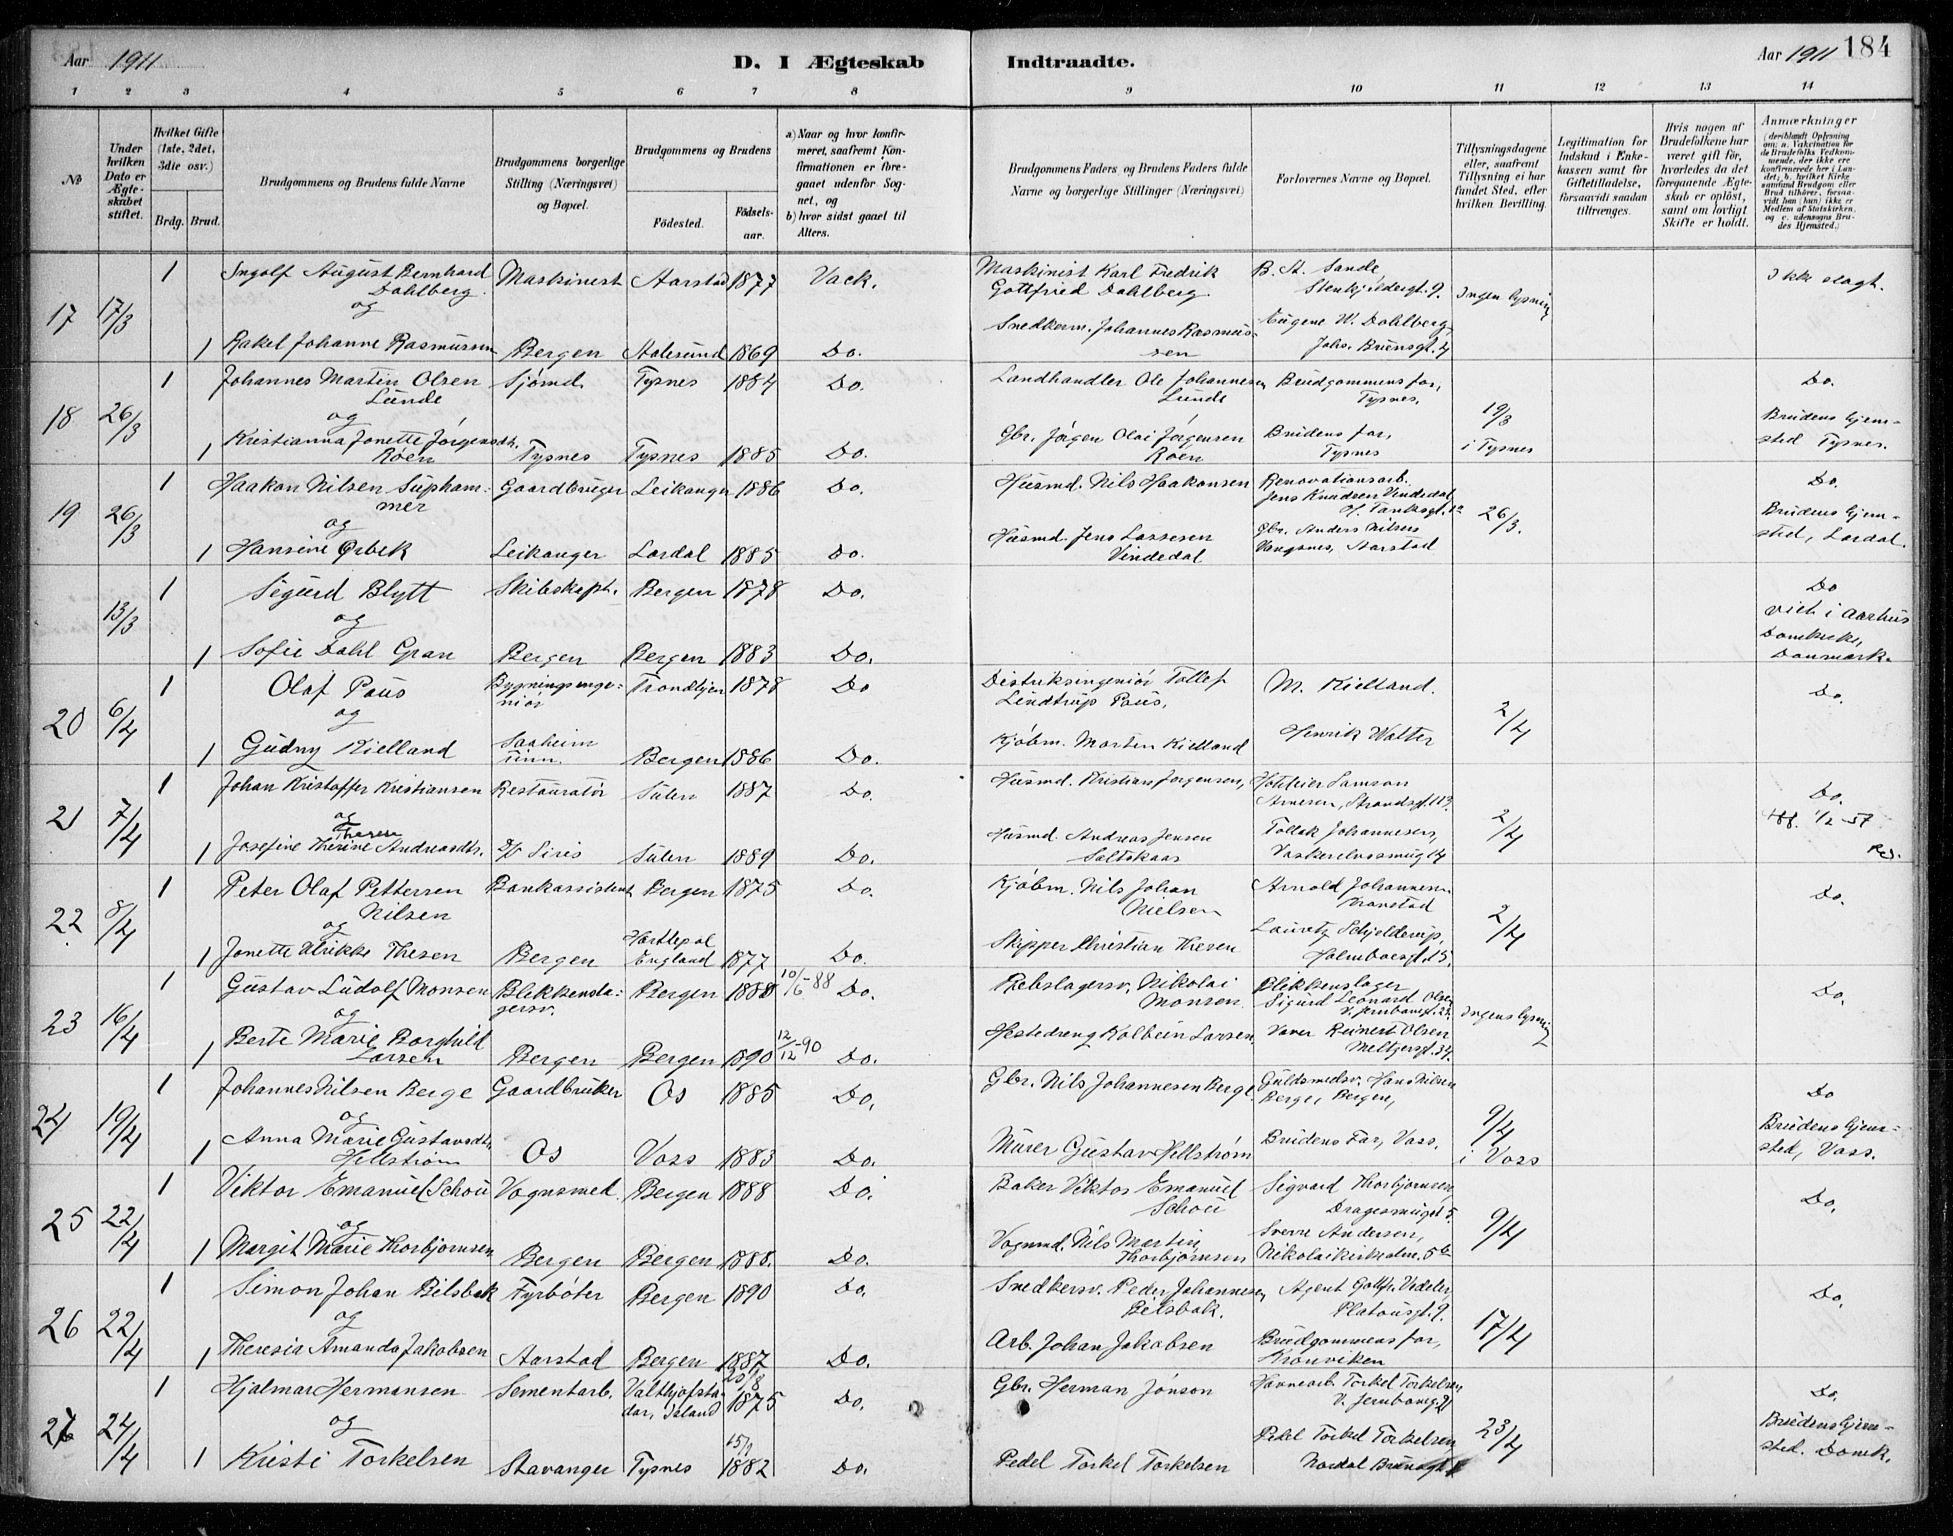 Aar 1911
D. I Ægteskab Indtraadte.
Aar 1911
184
1 2 3 4 5 6 7 8 9 10 11 12 13 14
№
Under hvilken Dato er Ægteskabet stiftet.
Hvilket Gifte (1ste, 2det, 3die osv.)
Brdg. Brud.
Brudgommens og Brudens fulde Navne
Brudgommens borgerlige Stilling (Næringsvei) og Bopæl.
Brudgommens og Brudens
Fødested.
Fødsels-aar.
a) Naar og hvor konfirmeret, saafremt Konfirmationen er foregaaet udenfor Sognet, og
b) hvor sidst gaaet til Alters.
Brudgommens Faders og Brudens Faders fulde Navne og borgerlige Stillinger (Næringsvei)
Forlovernes Navne og Bopæl.
Tillysningsdagene eller, saafremt Tillysning ei har fundet Sted, efter hvilken Bevilling.
Legitimation for Indskud i Enkekassen samt for Giftetilladelse, forsaavidt saadan tiltrænges.
Hvis nogen af Brudefolkene har været gift før, hvorledes da det foregaaende Ægteskab er opløst, samt om lovligt Skifte er holdt.
Anmærkninger (deriblandt Oplysning om: a. Vaksination for de Brudefolks Vedkommende, der ikke ere konfirmerede her i Landet; b. hvilket Kirkesamfund Brudgom eller Brud tilhører, forsaavidt han (hun) ikke er Medlem af Statskirken, og c. udensogns Brudes Hjemsted.)
17 17/3 1 Ingolf August Bernhard Dahlberg Maskinist Aarstad 1877 Vack. Maskinist Karl Fredrik Gottfried Dahlberg B. St. Sande, 9. Ingen lysning Ikke slagt.
og
1 Rakel Johanne Rasmussen Bergen Aalesund 1869 Do. Snedkerm. Johannes Rasmussen Eugene W. Dahlberg, Johs. Brunsgt. 4
18 26/3 1 Johannes Martin Olsen Lunde Sjømd. Tysnes 1884 Do. Landhandler Ole Johannesen Lunde Brudgommens far, Tysnes. 19/3 i Tysnes Do.
og
1 Kristianna Jonette Jørgensdtr. Røen Tysnes Tysnes 1885 Do. Gbr. Jørgen Olai Jørgensen Røen Brudens far, Tysnes Brudens Hjemsted Tysnes.
19 26/3 1 Haakon Nilsen Suphammer Gaardbruger Leikanger 1886 Do. Husmd. Nils Haakonsen Renovationsarb. Jens Knudsen Vindedal 26/3. Do.
og
1 Hansine Ørbek Leikanger Lærdal 1885 Do. Husmd. Jens Lassesen Vindedal Gbr. Anders Nilsen Vangsnes, Aarstad Brudens Hjemsted, Lærdal.
13/3 1 Sigurd Blytt Skibskapt. Bergen 1878 Do. Do viet i Aarhus Domkirke, Danmark.
og
1 Sofie Dahl Gran Bergen Bergen 1883 Do.
20 6/4 1 Olaf Paus Bygningsingeniør Trondhjem 1878 Do Distriksingeniør Tollef Lindtrup Paus, M. Kielland. 2/4 Do.
og
1 Gudny Kielland Saaheim Bergen 1886 Do. Kjøbm. Morten Kielland Henrik Walter
21 7/4 1 Johan Kristoffer Kristiansen Restauratør Sulen 1887 Do. Husmd. Kristian Jørgensen, Hotleier Samson Arnesen, Strandsgt. 2/4 Do.
og
1 Josefine Therine Therese Andreasdtr. D/S Siris Sulen 1889 Do. Husmd. Andreas Jensen Saltskaar Tollak Johannesen, 14 1/2-57
22 8/4 1 Peter Olaf Pettersen Nilsen Bankassistent Bergen 1875 Do. Kjøbm. Nils Johan Nielsen Arnold Johannesen 2/4 Do.
og
1 Jonette Ulrikke Thesen Bergen Hartlepol England 1877 Do. Skipper Christian Thesen Lauretz Schjelderup, Holmboesgt. 15.
23 16/4 1 Gustav Ludolf Monsen Blikkenslagersv. Bergen 1888 10/5-88 Do. Rebslagersv. Nikolai Monsen Blikkenslager Sigurd Leonard Olsen Ingen lysning Do.
og
1 Berte Marie Borghild Larsen Bergen Bergen 1890 12/12-90 Do. Hestedreng Kolbein Larsen, Vever Reinert Olsen Meltzersgt. 34.
24 19/4 1 Johannes Nilsen Berge Gaardbruker Os 1885 Do. Gbr. Nils Johannesen Berge Guldsmedsv. Hans Nilsen Berge, Bergen, 9/4 i Voss Do
og
1 Anna Marie Gustavsdtr. Hellstrøm Os Voss 1883 Do. Murer Gustav Hellstrøm Brudens Far, Voss. Brudens Hjemsted, Voss.
25 22/4 1 Viktor Emanuel Schou Vognsmed. Bergen 1888 Do. Baker Viktor Emanuel Schou Sigvard Thorbjørnsen Dragesmuget 5. 9/4 Do.
og
1 Margit Marie Thorbjørnsen Bergen Bergen 1888. Do. Vognmd. Nils Martin Thorbjørnsen Sverre Andersen, Nikolaikirkealm. 5b
26 22/4 1 Simon Johan Bilsbak Fyrbøter Bergen 1890 Do. Snedkersv. Peder Johannesen Bilsbak. Agent Gottfr. Vedeler, Platousgt. 9. 17/4 Do.
og
1 Theresie Amanda Jakobsen Aarstad Bergen 1887 Do. Arb. Johan Jakobsen Brudgommens far, Kronviken
27 24/4 1 Hjalmar Hermansen Sementarb. Valthjofstadar, Island 25/8 1875 Do. Gbr. Herman Jónson Havnearb. Torkel Torkelsen 23/4 Do.
og
1 Kristi Torkelsen Stavanger Tysnes 1882 Do. Pedel Torkel Torkelsen Pedel Torkel Torkelsen Nordal Brunsgt. Brudens Hjemsted. Domk.